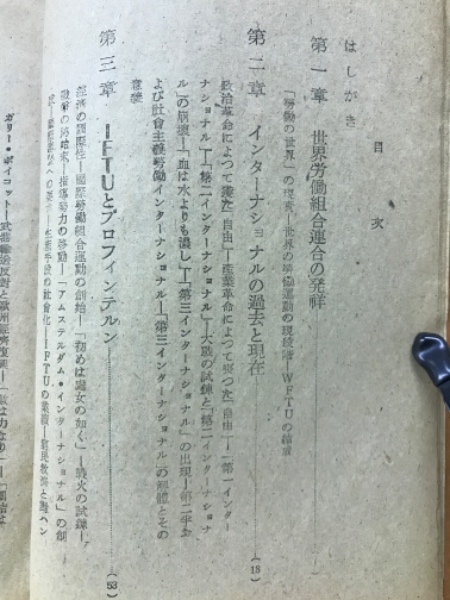 目次
はしがき
第一章 世界労働組合連合の発祥
「労働の世界」の現実—世界の労働運動の現段階—WFTUの結成
第二章 インターナショナルの過去と現在 (18)
政治革命によつて獲た「自由」—産業革命によつて獲つた「自由」—「第一インター
ナショナル」—「第二インターナショナル」—大戦の試錬と「第二インターナショナ
ル」の崩壊—「血は水よりも濃し」—「第三インターナショナル」の出現—第二半お
よび社會主義労働インターナショナル—「第三インターナショナル」の解體とその
第三章 IFTUとプロフィンテルン (53)
経済の國際性—國際労働組合運動の創始—「初めは處女の如く」—戦火の試錬—
指導勢力の移動—「アムステルダム・インターナショナル」の創
生産手段の社會化—IFTUの業績
ガリー・ボイコット—武器輸送反對と欧州経済復興